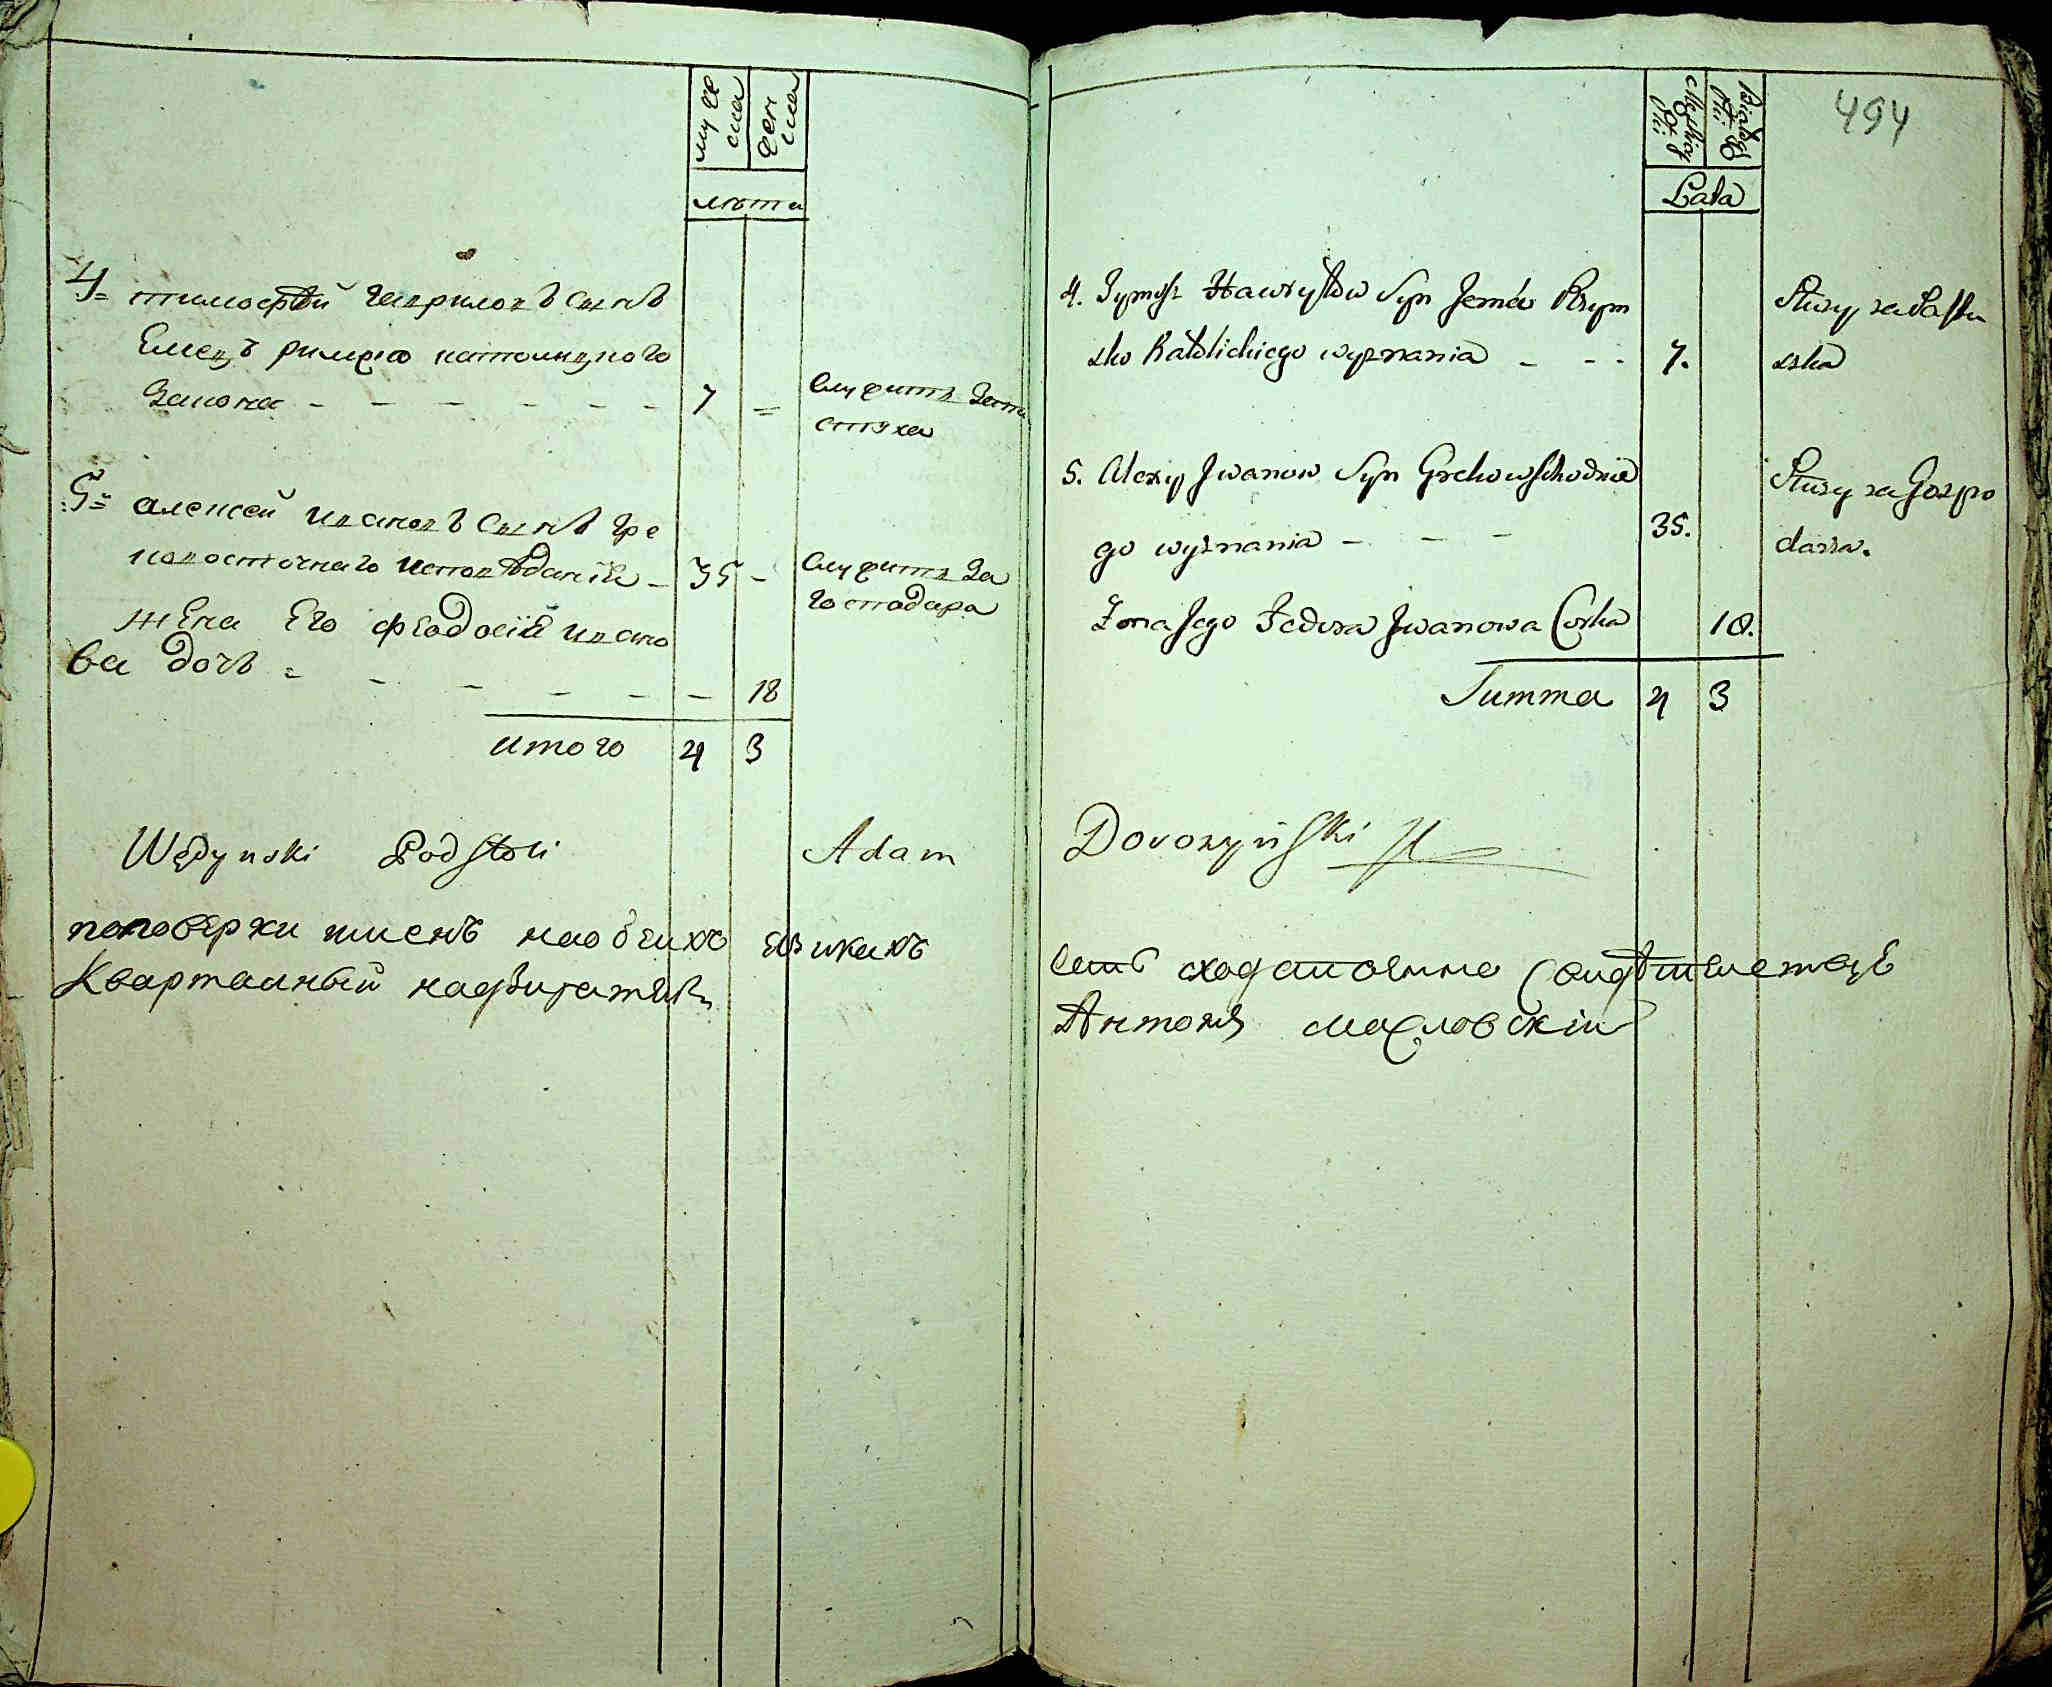 муже
ска
жен
ска
лѣта
4= тимофѣй гавриловъ сынъ
Емецъ римско католицкого
закона - - - - - - - 7 =
служитъ запа
стуха
5= алексей ивановъ сынъ гре
ковосточнаго исповѣданія - 35 -
служитъ за
господара
жена Его феодосія ивано
ва дочь - - - - - - - 18
итого 4 3
Wędynski Podstoli Adam
поповерки писенъ наобеихъ язикахъ
Квартальный надзиратель
494
Męskiey
Płci
Białey
Płci
Lata
4. Tymosz Hawryłow Syn Jemec Rzym
sko Katolickiego wyznania - - - 7.
Służy za Pastu
szka
5. Alexy Iwanow Syn Grekowschodnie
go wyznania - - - 35.
Służy za Gospo
darza.
Zona Jego Fedora Iwanowa Corka 18.
Summa 4 3
Dorozyński
семъ сходственно свидѣтельствуе
Антоній Масловскій